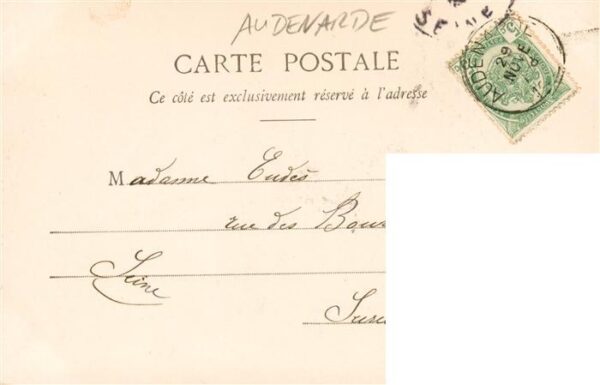 AUDENARDE
CARTE POSTALE
Ce côté est exclusivement réservé à l'adresse
Madame Eudes
rue des
Seine